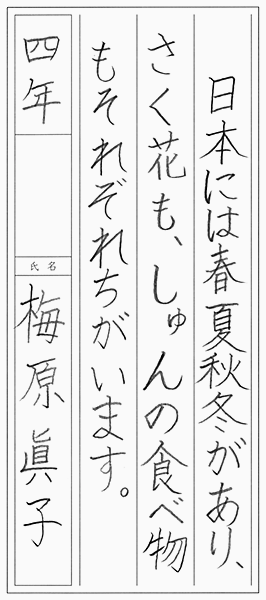 日本には春夏秋冬があり、
さく花も、しゅんの食べ物
もそれぞれちがいます。
四年
氏名
梅原眞子